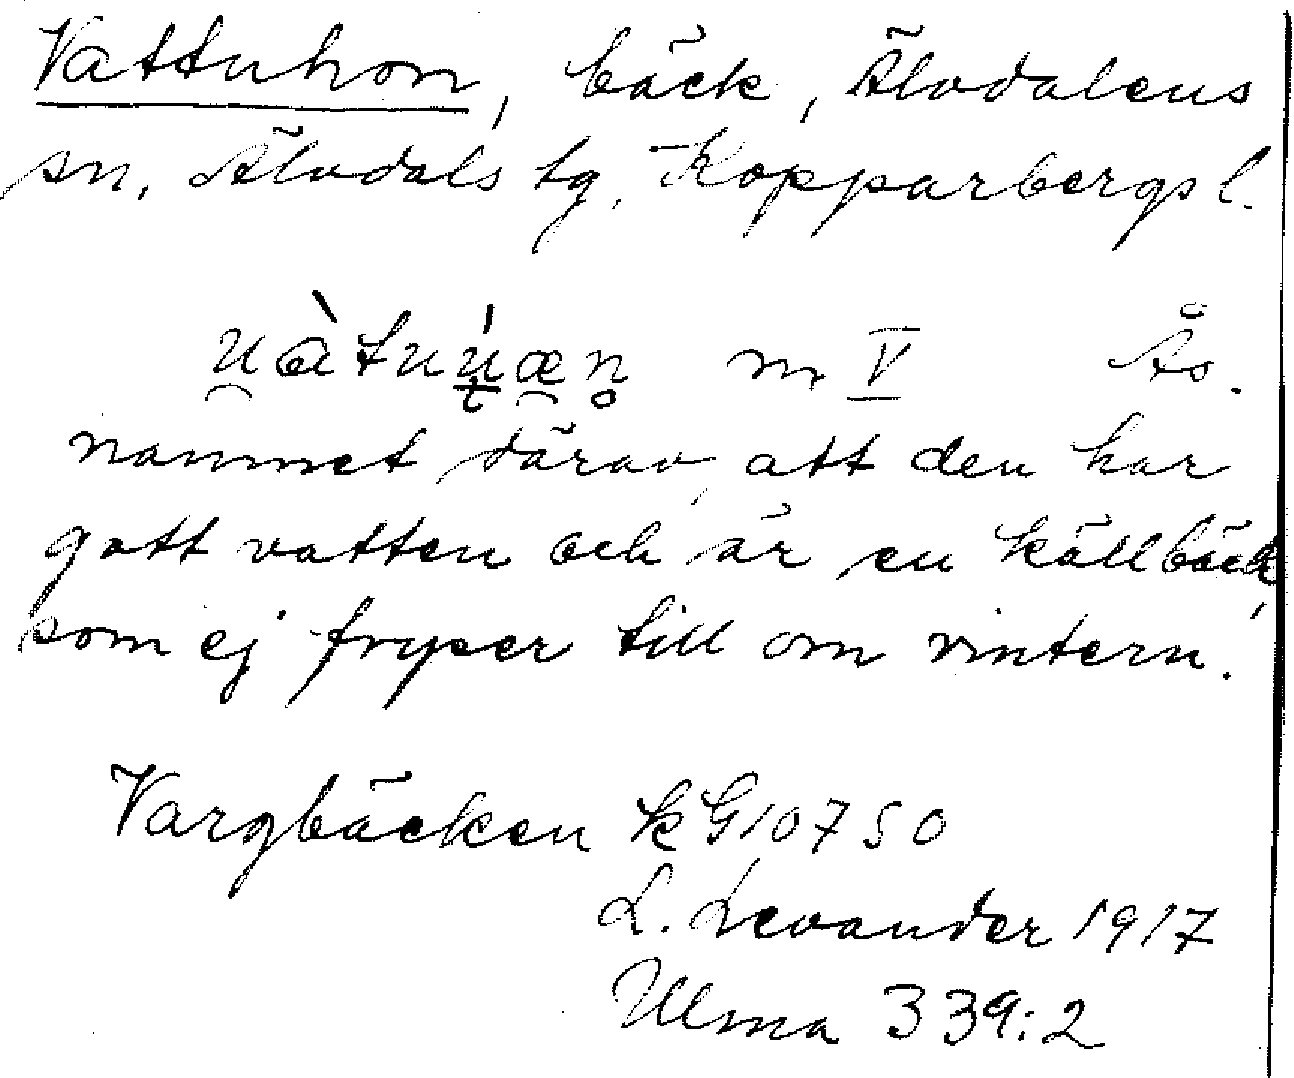 Vattuhon, bäck, Älvdalens
sn, Älvdals tg, Kopparbergs l.
m V Ås.
namnet därav, att den har
gott vatten och är en källbäck,
som ej fryser till om vintern.
Vargbäcken kG 10750
L. Levander 1917
Ulma 339:2